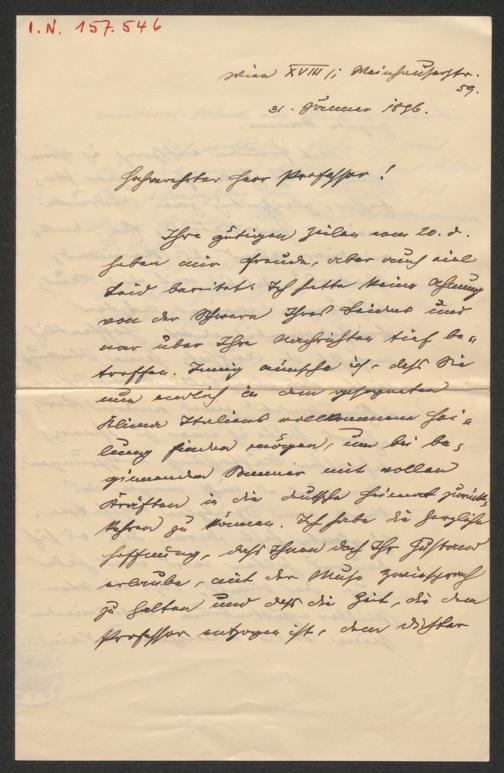 I.N. 157.546
Wien XVIII/1 Weinhauserstr.
59.
31. Jänner 1896.
Hochverehrter Herr Professor!
Ihre gütigen Zeilen vom 20. d.
haben mir Freude, aber auch viel
Leid bereitet. Ich hatte keine Ahnung
von der Schwere Ihres Leidens und
war über Ihre Nachrichten tief be=
troffen. Innig wünsche ich, daß Sie
nun endlich in dem gesegneten
Klima Italiens vollkommene Hei=
lung finden mögen, um bei be=
ginnendem Sommer mit vollen
Kräften in die deutsche Heimat zurück=
kehren zu können. Ich habe die herzliche
Hoffnung, daß Ihnen doch Ihr Zustand
erlaube, mit der Muse Zwiesprach
zu halten und daß die Zeit, die dem
Professor entzogen ist, dem Dichter